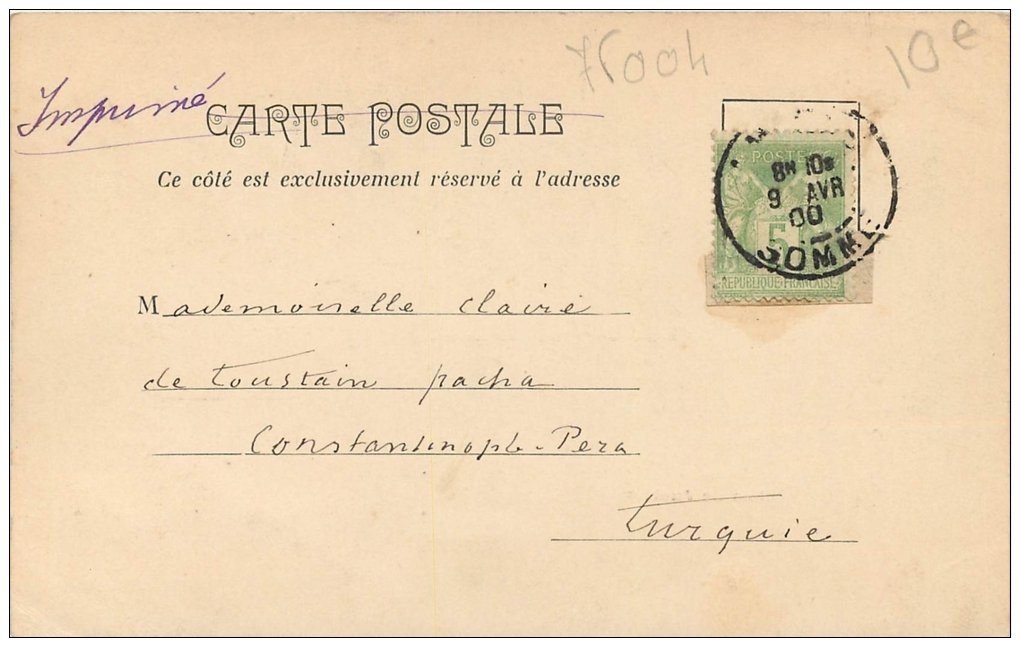 75004
10e
Imprimé
CARTE POSTALE
Ce côté est exclusivement réservé à l'adresse
POSTE
8H 10S
9 AVR
00
SOMME
5
5
REPUBLIQUE FRANÇAISE
Mademoiselle Claire
de Toustain pacha
Constantinople-Pera
Turquie